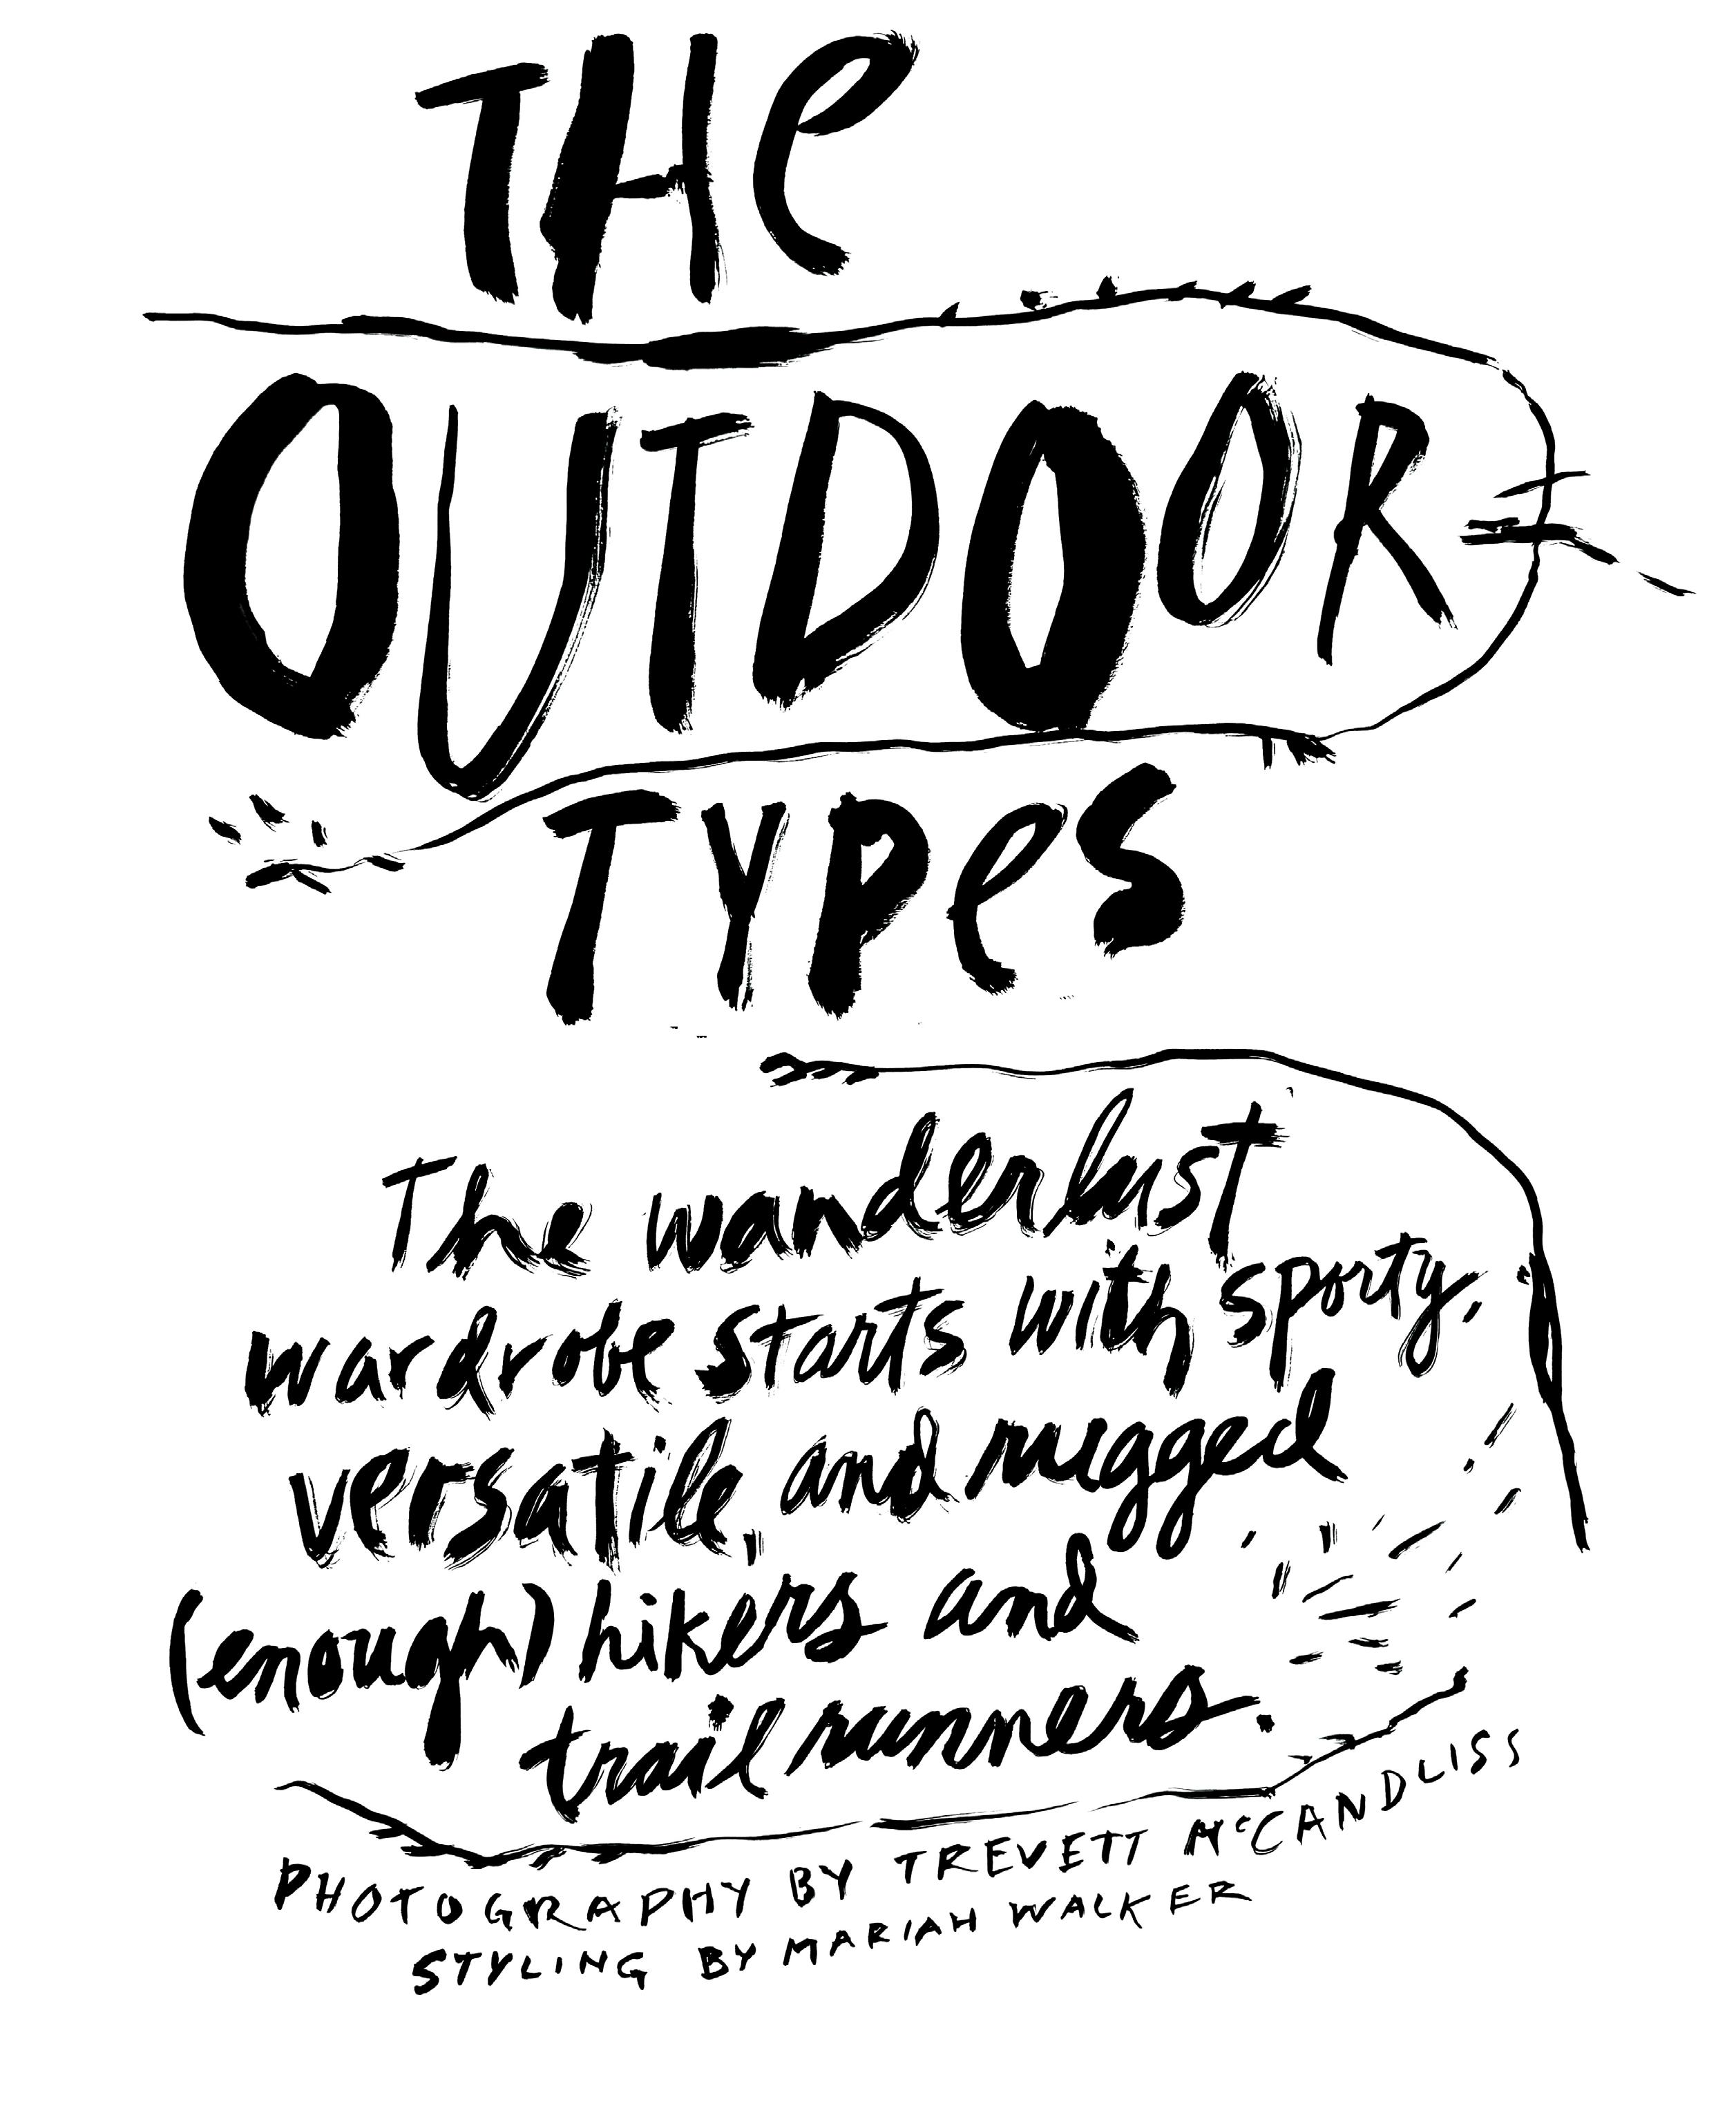 THe
OUTDOOR
TYPeS
The wanderlust
wardrobe starts with sporty,
versatile, and rugged
(enough) hikers and
trail runners.
PHOTOGRAPHY BY TREVETT McCANDLISS
STYLING BY MARIAH WALKER